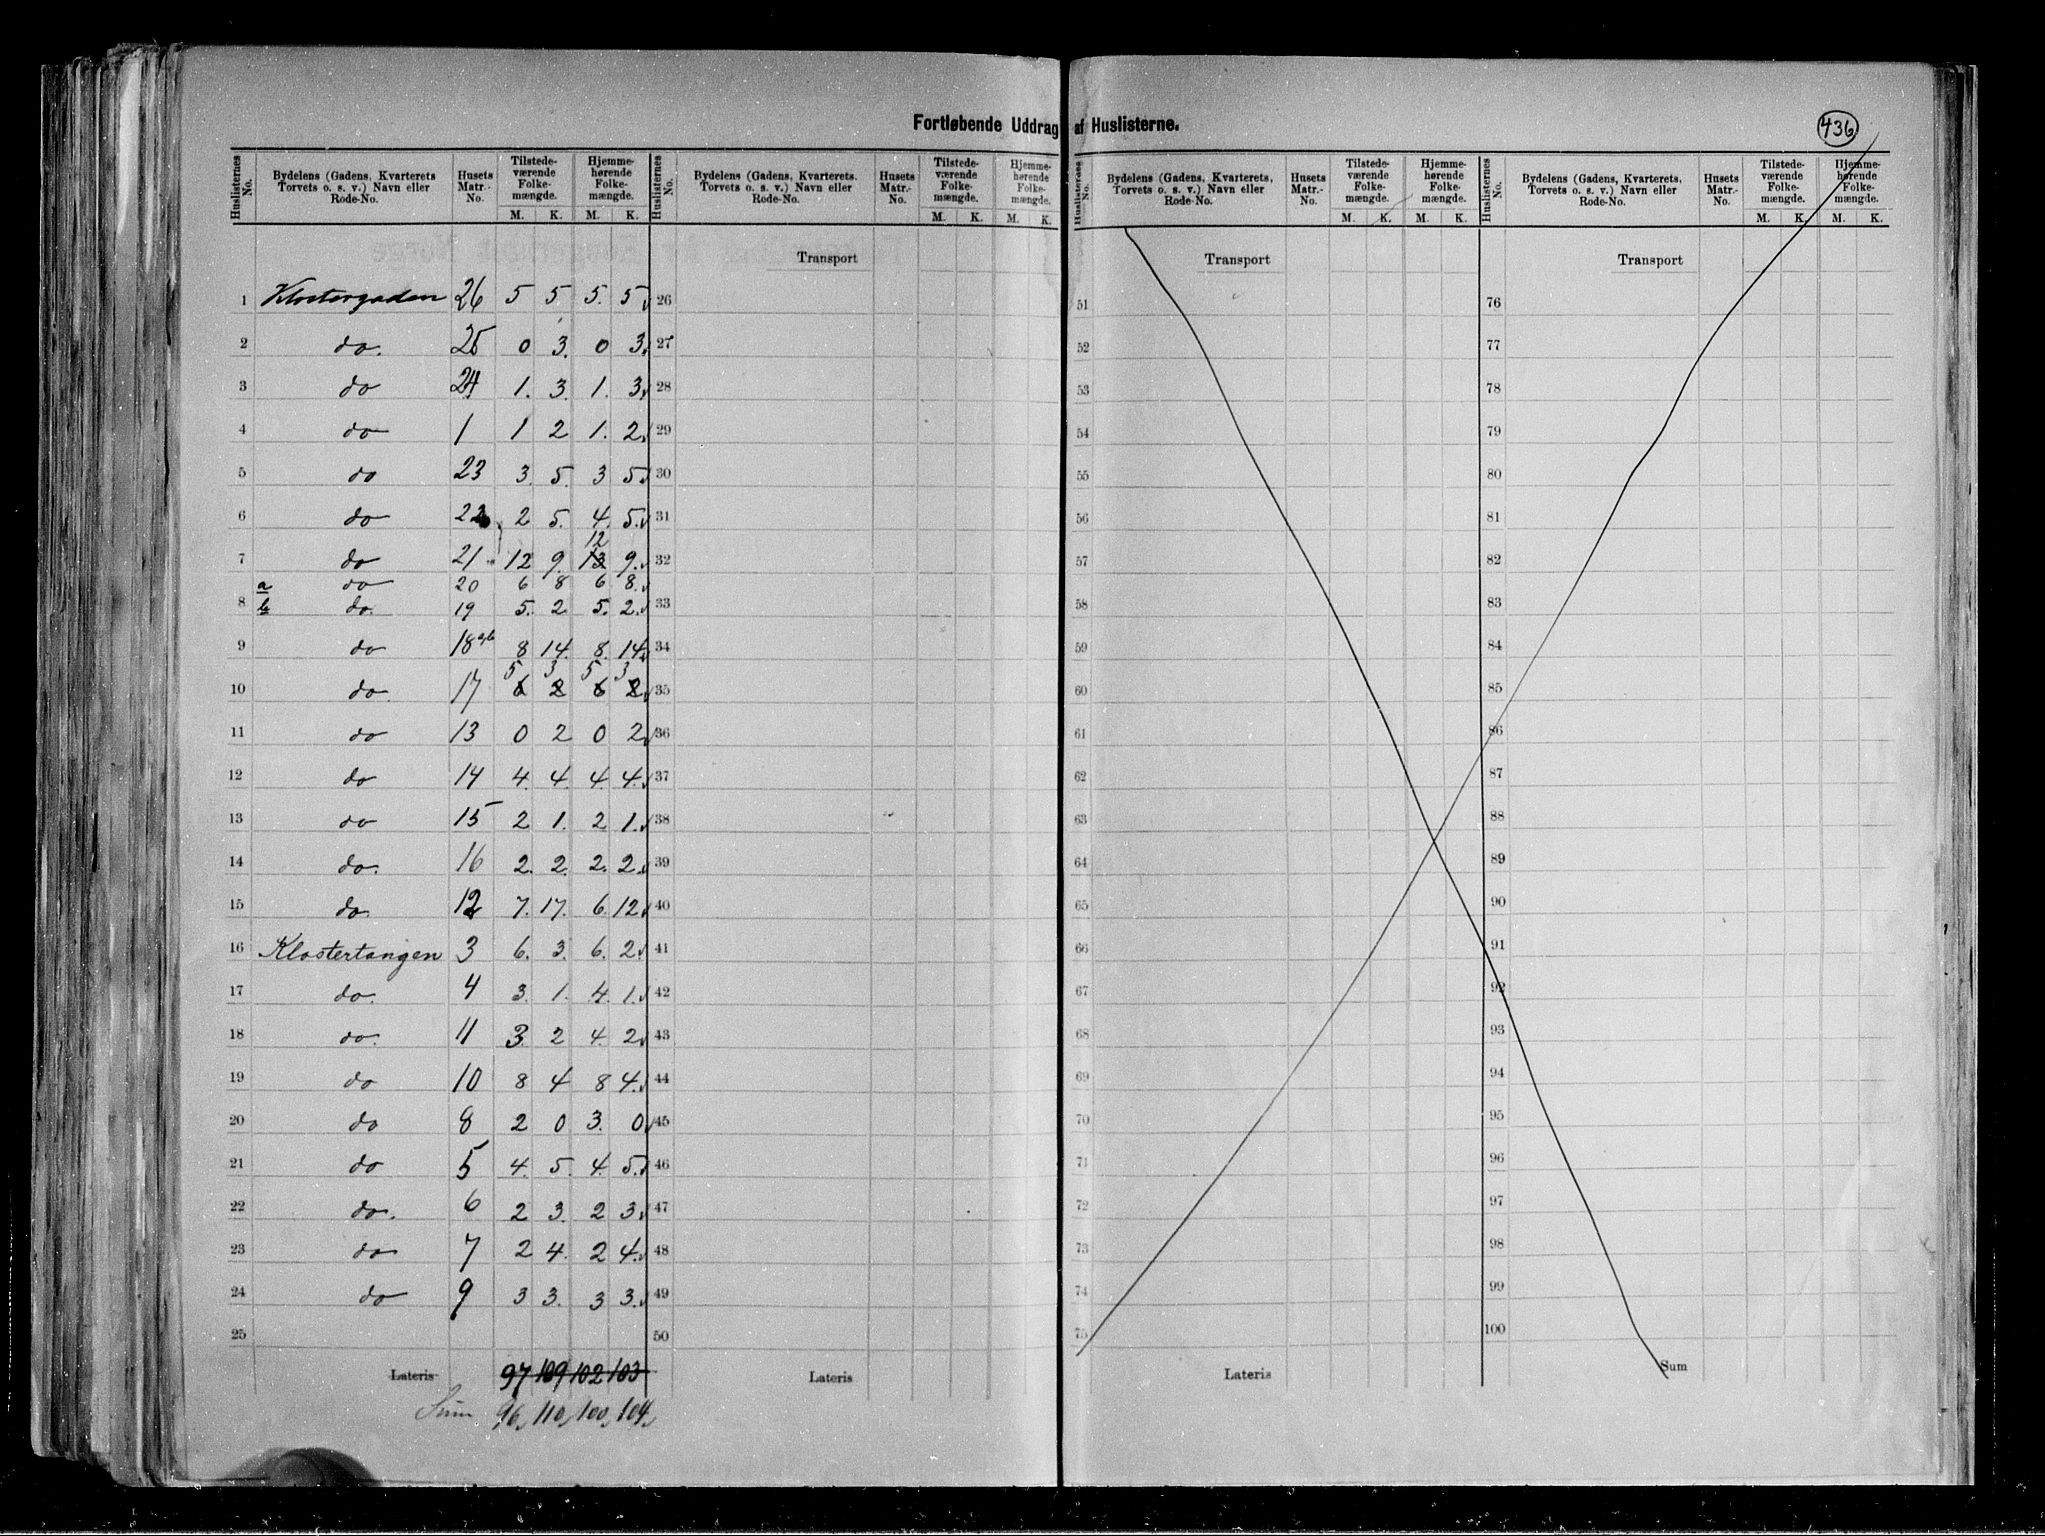 Fortløbende Uddrag af Huslisterne.
436
Huslisternes No. | Bydelens (Gadens, Kvarterets, Torvets o. s. v.) Navn eller Rode-No. | Husets Matr.-No. | Tilstedeværende Folkemængde. M. K. | Hjemmehørende Folkemængde. M. K.
1 Klostergaden 26 5 5 5. 5
2 do. 25 0 3. 0 3.
3 do 24 1. 3. 1. 3
4 do 1 1 2 1. 2
5 do 23 3. 5. 3 5
6 do 22 2 5. 4. 5.
12
7 do 21 12 9. 13 9.
a do 20 6 8 6 8.
8 b do. 19 5. 2 5. 2.
9 do 18 ab 8 14. 8. 14
5 3 5 3
10 do. 17 6 2 6 2
11 do 13 0 2 0 2
12 do 14 4. 4. 4. 4.
13 do 15 2 1. 2 1.
14 do. 16 2. 2. 2. 2.
15 do. 12 7. 17. 6. 12
16 Klostertangen 3 6. 3. 6. 2.
17 do. 4 3. 1. 4. 1.
18 do. 11 3. 2 4. 2
19 do 10 8 4 8 4.
20 do 8 2 0 3. 0
21 do 5 4. 5. 4. 5.
22 do. 6 2 3. 2 3.
23 do 7 2 4. 2 4.
24 do 9 3 3. 3 3.
25
Lateris 97 109 102 103
Sum 96 110 100 104
Huslisternes No. | Bydelens (Gadens, Kvarterets, Torvets o. s. v.) Navn eller Rode-No. | Husets Matr.-No. | Tilstedeværende Folkemængde. M. K. | Hjemmehørende Folkemængde. M. K.
Transport
26
27
28
29
30
31
32
33
34
35
36
37
38
39
40
41
42
43
44
45
46
47
48
49
50
Lateris
Huslisternes No. | Bydelens (Gadens, Kvarterets, Torvets o. s. v.) Navn eller Rode-No. | Husets Matr.-No. | Tilstedeværende Folkemængde. M. K. | Hjemmehørende Folkemængde. M. K.
Transport
51
52
53
54
55
56
57
58
59
60
61
62
63
64
65
66
67
68
69
70
71
72
73
74
75
Lateris
Huslisternes No. | Bydelens (Gadens, Kvarterets, Torvets o. s. v.) Navn eller Rode-No. | Husets Matr.-No. | Tilstedeværende Folkemængde. M. K. | Hjemmehørende Folkemængde. M. K.
Transport
76
77
78
79
80
81
82
83
84
85
86
87
88
89
90
91
92
93
94
95
96
97
98
99
100
Sum